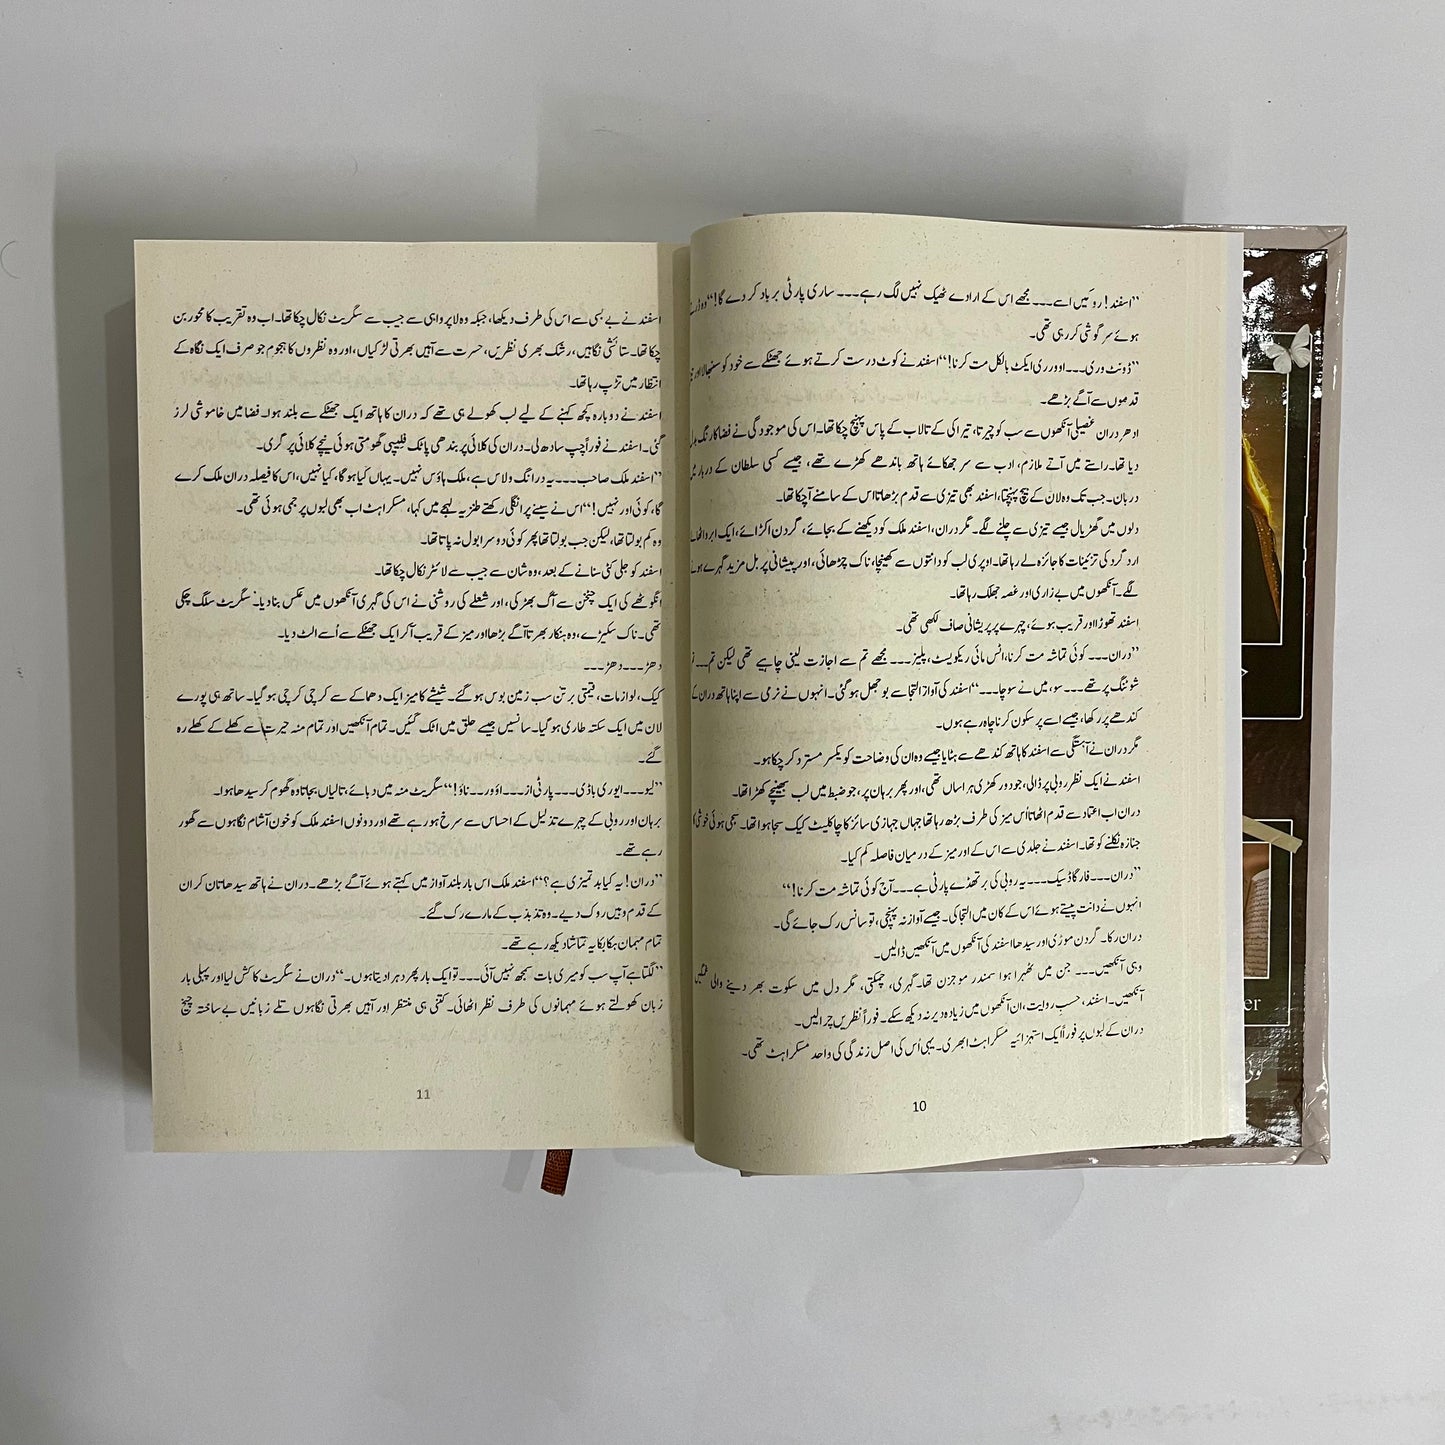 "اسفند! روکیں اسے۔۔۔ مجھے اس کے ارادے ٹھیک نہیں لگ رہے۔۔۔ ساری پارٹی برباد کر دے گا!"
ہوئے سرگوشی کر رہی تھی۔
"ڈونٹ وری۔۔۔ اوور ری ایکٹ بالکل مت کرنا!" اسفند نے کوٹ درست کرتے ہوئے جھٹکے سے خود کو سنبھالا اور
قدموں سے آگے بڑھے۔
ادھر دران غصیلی آنکھوں سے سب کو چیرتا، تیراکی کے تالاب کے پاس پہنچ چکا تھا۔ اس کی موجودگی نے فضا کا رنگ
دیا تھا۔ راستے میں آتے ملازم، ادب سے سر جھکائے ہاتھ باندھے کھڑے تھے، جیسے کسی سلطان کے دربار
دربان۔ جب تک وہ لان کے بیچ پہنچتا، اسفند بھی تیزی سے قدم بڑھاتا اس کے سامنے آچکا تھا۔
دلوں میں گھڑیال جیسے تیزی سے چلنے لگے۔ مگر دران، اسفند ملک کو دیکھنے کے بجائے، گردن اکڑائے، ایک ابرو اٹھائے
ارد گرد کی تزئینات کا جائزہ لے رہا تھا۔ اوپری لب کو دانتوں سے کھینچا، ناک چڑھائی، اور پیشانی پر بل مزید گہرے ہونے
لگے۔ آنکھوں میں بے زاری اور غصہ جھلک رہا تھا۔
اسفند تھوڑا اور قریب ہوئے، چہرے پر پریشانی صاف لکھی تھی۔
"دران۔۔۔ کوئی تماشہ مت کرنا، انس مائی ریکویسٹ، پلیز۔۔۔ مجھے تم سے اجازت لینی چاہیے تھی لیکن تم۔۔۔
شوٹنگ پر تھے۔۔۔ سو، میں نے سوچا۔۔۔" اسفند کی آواز التجا سے بوجھل ہوگئی۔ انہوں نے نرمی سے اپنا ہاتھ دران کے
کندھے پر رکھا، جیسے اسے پر سکون کرنا چاہ رہے ہوں۔
مگر دران نے آہستگی سے اسفند کا ہاتھ کندھے سے ہٹایا جیسے وہ ان کی وضاحت کو یکسر مسترد کر چکا ہو۔
اسفند نے ایک نظر روبی پر ڈالی، جو دور کھڑی ہراساں تھی، اور پھر برہان پر، جو ضبط میں لب بھینچے کھڑا تھا۔
دران اب اعتماد سے قدم اٹھاتا اُس میز کی طرف بڑھ رہا تھا جہاں جہازی سائز کا چاکلیٹ کیک سجا ہوا تھا۔ سجی ہوئی
جنازہ نکلنے کو تھا۔ اسفند نے جلدی سے اس کے اور میز کے درمیان فاصلہ کم کیا۔
"دران۔۔۔ فار گاڈ سیک۔۔۔ یہ روبی کی برتھڈے پارٹی ہے۔۔۔ آج کوئی تماشہ مت کرنا!"
انہوں نے دانت پیستے ہوئے اس کے کان میں التجا کی۔ جیسے آواز نہ پہنچی، تو سانس رک جائے گی۔
دران رکا۔ گردن موڑی اور سیدھا اسفند کی آنکھوں میں آنکھیں ڈالیں۔
وہی آنکھیں۔۔۔ جن میں ٹھہرا ہوا سمندر موجزن تھا۔ گہری، چمکتی، مگر دل میں سکوت بھر دینے والی
آنکھیں۔ اسفند، حسبِ روایت، ان آنکھوں میں زیادہ دیر نہ دیکھ سکے۔ فوراً نظریں چرا لیں۔
دران کے لبوں پر فوراً ایک استہزائیہ مسکراہٹ ابھری۔ یہی اُس کی اصل زندگی کی واحد مسکراہٹ تھی۔
10
اسفند نے بے بسی سے اس کی طرف دیکھا، جبکہ وہ لاپرواہی سے جیب سے سگریٹ نکال چکا تھا۔ اب وہ تقریب کا محور بن
چکا تھا۔ ستائشی نگاہیں، رشک بھری نظریں، حسرت سے آہیں بھرتی لڑکیاں، اور وہ نظروں کا ہجوم جو صرف ایک نگاہ کے
انتظار میں تڑپ رہا تھا۔
اسفند نے دوبارہ کچھ کہنے کے لیے لب کھولے ہی تھے کہ دران کا ہاتھ ایک جھٹکے سے بلند ہوا۔ فضا میں خاموشی لرز
گئی۔ اسفند نے فوراً چپ سادھ لی۔ دران کی کلائی پر بندھی پاٹک فلیپی گھومتی ہوئی نیچے کلائی پر گری۔
"اسفند ملک صاحب۔۔۔ یہ درانگ ولاس ہے، ملک ہاؤس نہیں۔ یہاں کیا ہوگا، کیا نہیں، اس کا فیصلہ دران ملک کرے
گا، کوئی اور نہیں!" اس نے سینے پر انگلی رکھتے طنزیہ لہجے میں کہا، مسکراہٹ اب بھی لبوں پر جمی ہوئی تھی۔
وہ کم بولتا تھا، لیکن جب بولتا تھا پھر کوئی دوسرا بول نہ پاتا تھا۔
اسفند کو جلی کٹی سنانے کے بعد، وہ شان سے جیب سے لائٹر نکال چکا تھا۔
انگوٹھے کی ایک چٹخن سے آگ بھڑکی، اور شعلے کی روشنی نے اس کی گہری آنکھوں میں عکس بنا دیا۔ سگریٹ سلگ چکی
تھی۔ ناک سکیڑے، وہ ہنکار بھرتا آگے بڑھا اور میز کے قریب آکر ایک جھٹکے سے اُسے الٹ دیا۔
دھڑ۔۔۔ دھڑ۔۔۔
کیک، لوازمات، قیمتی برتن سب زمین بوس ہو گئے۔ شیشے کا میز ایک دھماکے سے کرچی کرچی ہوگیا۔ ساتھ ہی پورے
لان میں ایک سکتہ طاری ہو گیا۔ سانسیں جیسے حلق میں اٹک گئیں۔ تمام آنکھیں اور تمام منہ حیرت سے کھلے کے کھلے رہ
گئے۔
"لیو۔۔۔ ایوری باڈی۔۔۔ پارٹی از۔۔۔ اوور۔۔۔ ناؤ!" سگریٹ منہ میں دبائے، تالیاں بجاتا وہ گھوم کر سیدھا ہوا۔
برہان اور روبی کے چہرے تذلیل کے احساس سے سرخ ہو رہے تھے اور دونوں اسفند ملک کو خون آشام نگاہوں سے گھور
رہے تھے۔
"دران! یہ کیا بد تمیزی ہے؟" اسفند ملک اس بار بلند آواز میں کہتے ہوئے آگے بڑھے۔ دران نے ہاتھ سیدھا تان کر ان
کے قدم وہیں روک دیے۔ وہ تذبذب کے مارے رک گئے۔
تمام مہمان ہکا بکا یہ تماشا دیکھ رہے تھے۔
"لگتا ہے آپ سب کو میری بات سمجھ نہیں آئی۔۔۔ تو ایک بار پھر دہرا دیتا ہوں۔" دران نے سگریٹ کا کش لیا اور پہلی بار
زبان کھولتے ہوئے مہمانوں کی طرف نظر اٹھائی۔ کتنی ہی منتظر اور آہیں بھرتی نگاہوں تلے زبانیں بے ساختہ چیخ
11